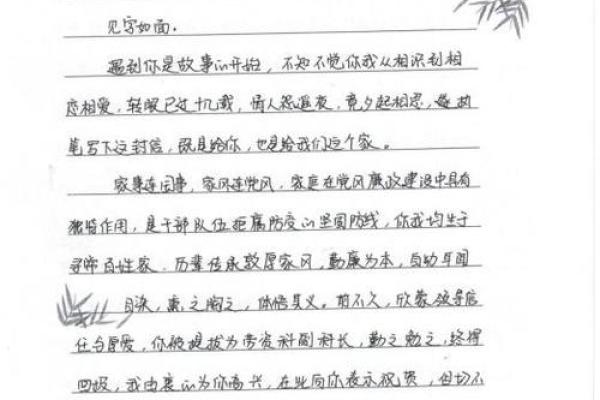 见字如面。
遇到你是故事的开始，不知不觉你我从相识到相
恋相爱，转眼已过十几载，情人怨遥夜，竟夕起相思，遂执
笔写下这封信，既是给你，也是给我们这个家。
家事连国事，家风连党风，家庭在党风廉政建设中具有
独特作用，是干部队伍拒腐防变的坚固防线，你我均生于
寻常百姓家，历辈传承敦厚家风，勤廉为本，自幼耳闻
目染，熏之陶之，体悟其义。前不久，欣蒙领导信
任与厚爱，你被提拔为劳资科副科长，勤之勉之，终得
回报，我由衷的为你高兴，在此向你表示祝贺，但切不